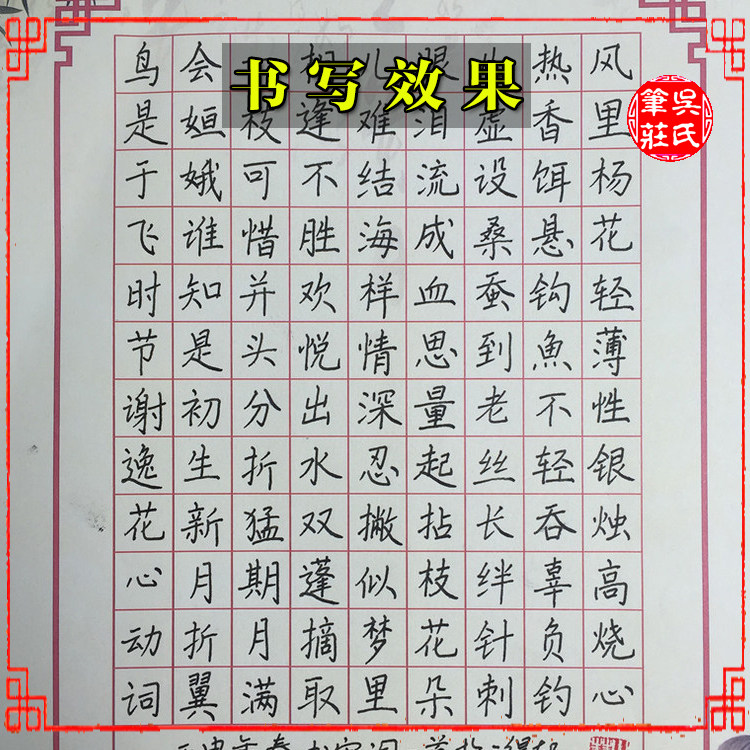 书写效果
吳氏
筆莊
风里杨花轻薄性银烛高烧心
热香饵悬钩魚不轻吞辜负钓
虚设桑蚕到老丝长绊针刺
眼泪流成血思量起拈枝花朵
儿难结海样情深忍撇似梦里
相逢不胜欢悦出水双蓬摘取
枝可惜并头分折猛期月满
会姮娥谁知是初生新月折翼
鸟是于飞时节谢逸花心动词